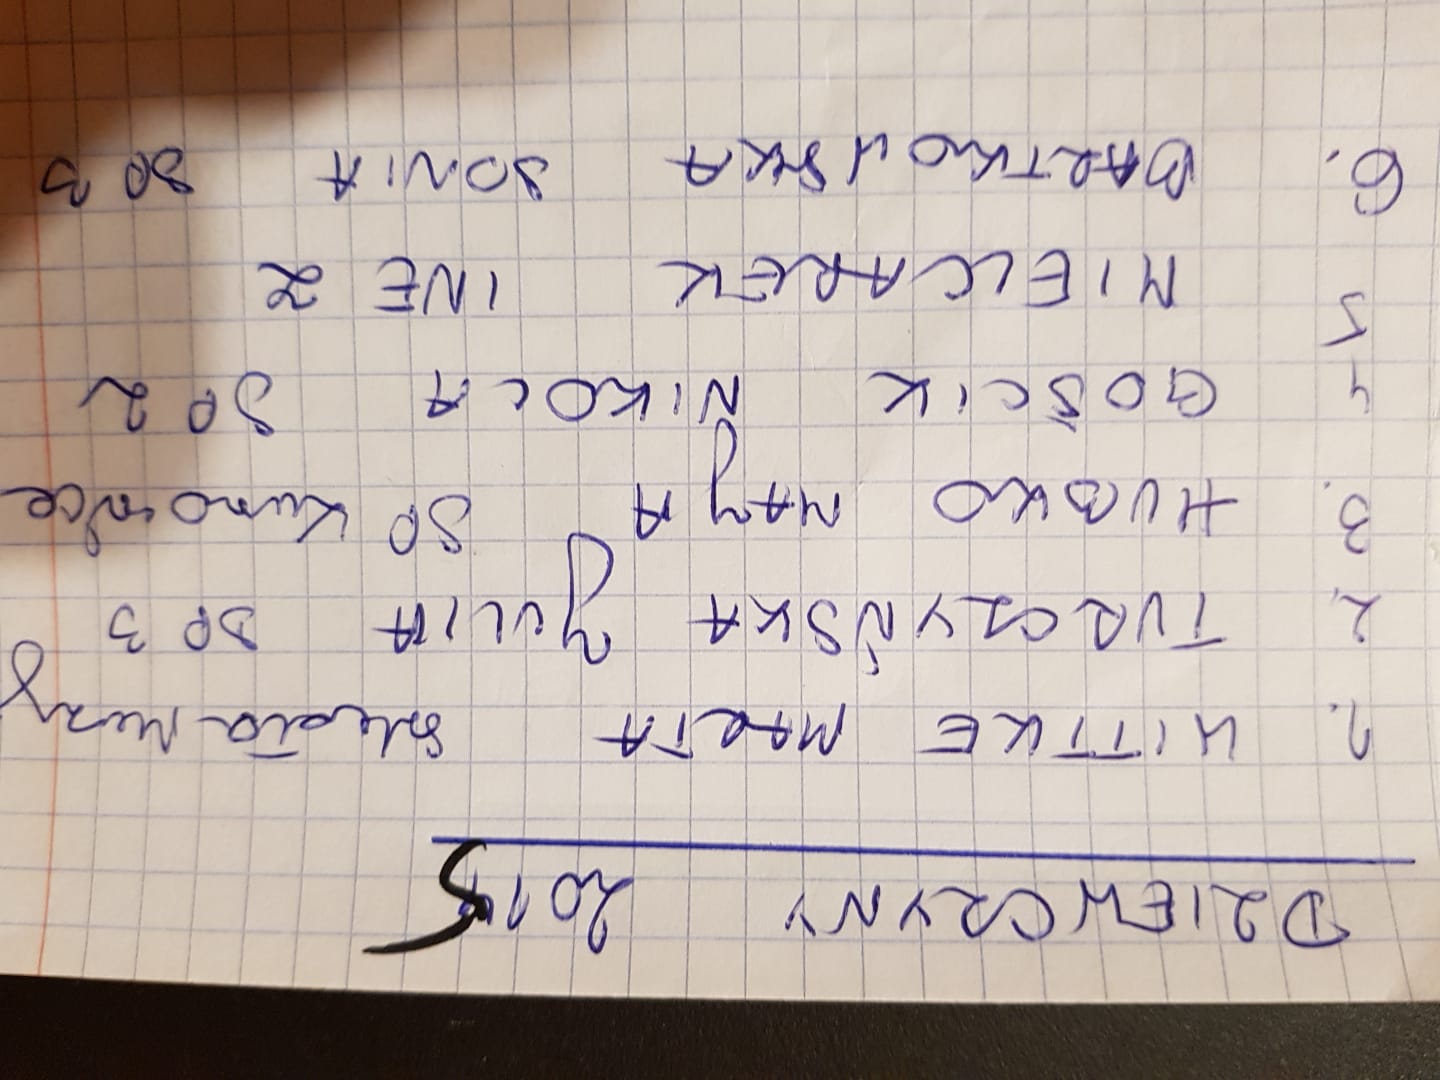 DZIEWCZYNY 2015
1. WITTKE MARTA
2. TURCZYŃSKA JULIA SP 3
3. HUBKO MAJA SP Kunowice
4 GOŚCIK NIKOLA SP 2
5 MIELCAREK INEZ
6. BARTKOWSKA SONIA SP 3